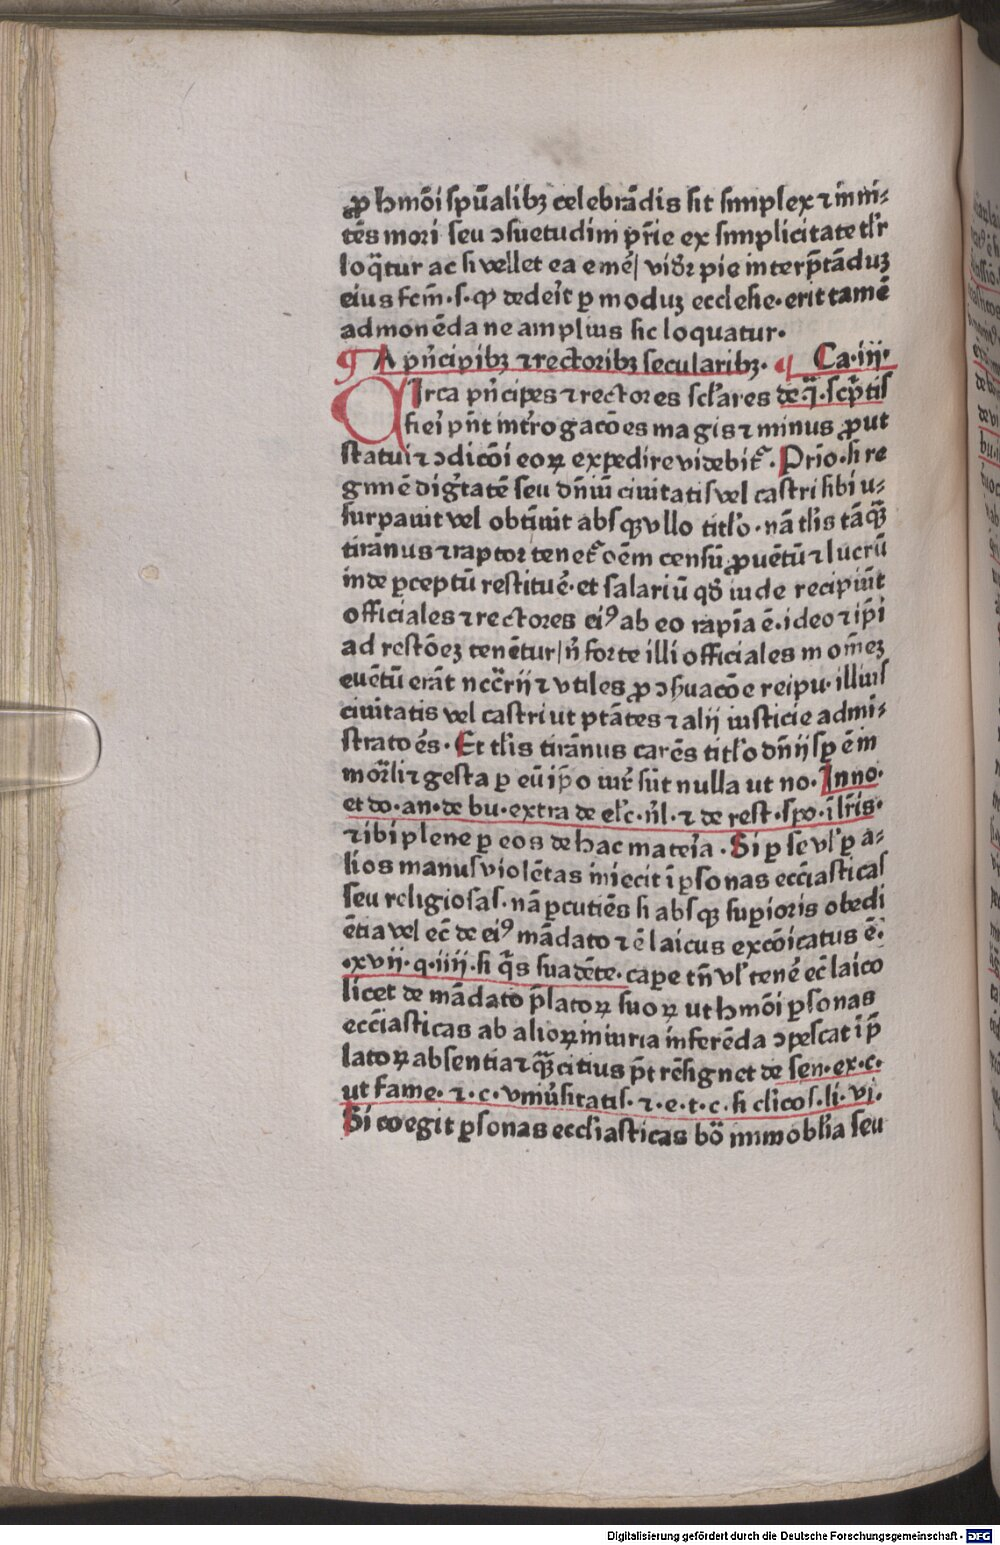 ꝓ hmōi spūalibꝫ celebrādis sit simplex ⁊ inni-
tēs mori seu ↄsuetudini pr̄ie ex simplicitate tl'r
loq̄tur ac si vellet ea emē/ vidr̄ pie interp̄tāduꝫ
eius fcm̄·s·ꝙ dedeīt ꝑ moduꝫ ecclesie·erit tamē
admonēda ne amplius sic loquatur·
¶ A pn̄cipibꝫ ⁊ rectoribꝫ secularibꝫ· ¶ Ca·iij·
CIrca pn̄cipes ⁊ rectores scl'ares de·ī·scp̄tis
fieī pn̄t int'rogacōes magis ⁊ minus ꝓut
statui ⁊ ↄdicōi eoꝝ expedire videbit᷑· Prīo·si re
gimē dig̅tatē seu dn̄iū ciuitatis vel castri sibi u-
surpauit vel obtinuit absqꝫ vllo titl'o·nā tl'is tāqꝫ
tirānus ⁊ raptor tenet᷑ oēm censū ꝓuētū ⁊ lucrū
inde ꝑceptū restituē·et salariū qd' inde recipiūt
officiales ⁊ rectores eiꝰ ab eo rapīa ē·ideo ⁊ ip̄i
ad restōeꝫ tenētur/ n̄ forte illi officiales in om̄eꝫ
euētū erāt ncc̄rij ⁊ vtiles ꝓ ↄſuacōe reipu·illius
ciuitatis vel castri ut ptātes ⁊ alij iusticie admi-
stratoēs· Et tl'is tirānus carēs titl'o dn̄ij sp̄ ē in
mor̄li ⁊ gesta ꝑ eū ip̄o iur̄ sūt nulla ut no· Inno·
et do·an·de bu·extra de el'c·nl·⁊ de rest·spo·īlr̄is·
⁊ ibi plene ꝑ eos de hac mateīa· Si ꝑ se vl' ꝑ a-
lios manus violētas iniecit ī ꝑsonas ecc̄iasticas
seu religiosas·nā ꝑcutiēs si absqꝫ suꝑioris obedi
ētia vel ec̄ de eiꝰ mādato ⁊ ē laicus excōicatus ē·
·xvij·q·iiij·si q̄s suadēte·capere tn̄ vl' tenē ec̄ laico
licet de mādato p̄latoꝝ suoꝝ ut hmōi ꝑsonas
ecc̄iasticas ab alioꝝ iniuria inferēda ↄpescat ī p̄
latoꝝ absentia ⁊ qꝫcitius p̄t rēsignet de sen·ex·c·
ut fame·⁊·c·vniu'sitatis·⁊·e·t·c·si clicos·li·vj·
Si coegit ꝑsonas eccliasticas bō immobl'ia seu
Digitalisierung gefördert durch die Deutsche Forschungsgemeinschaft - DFG